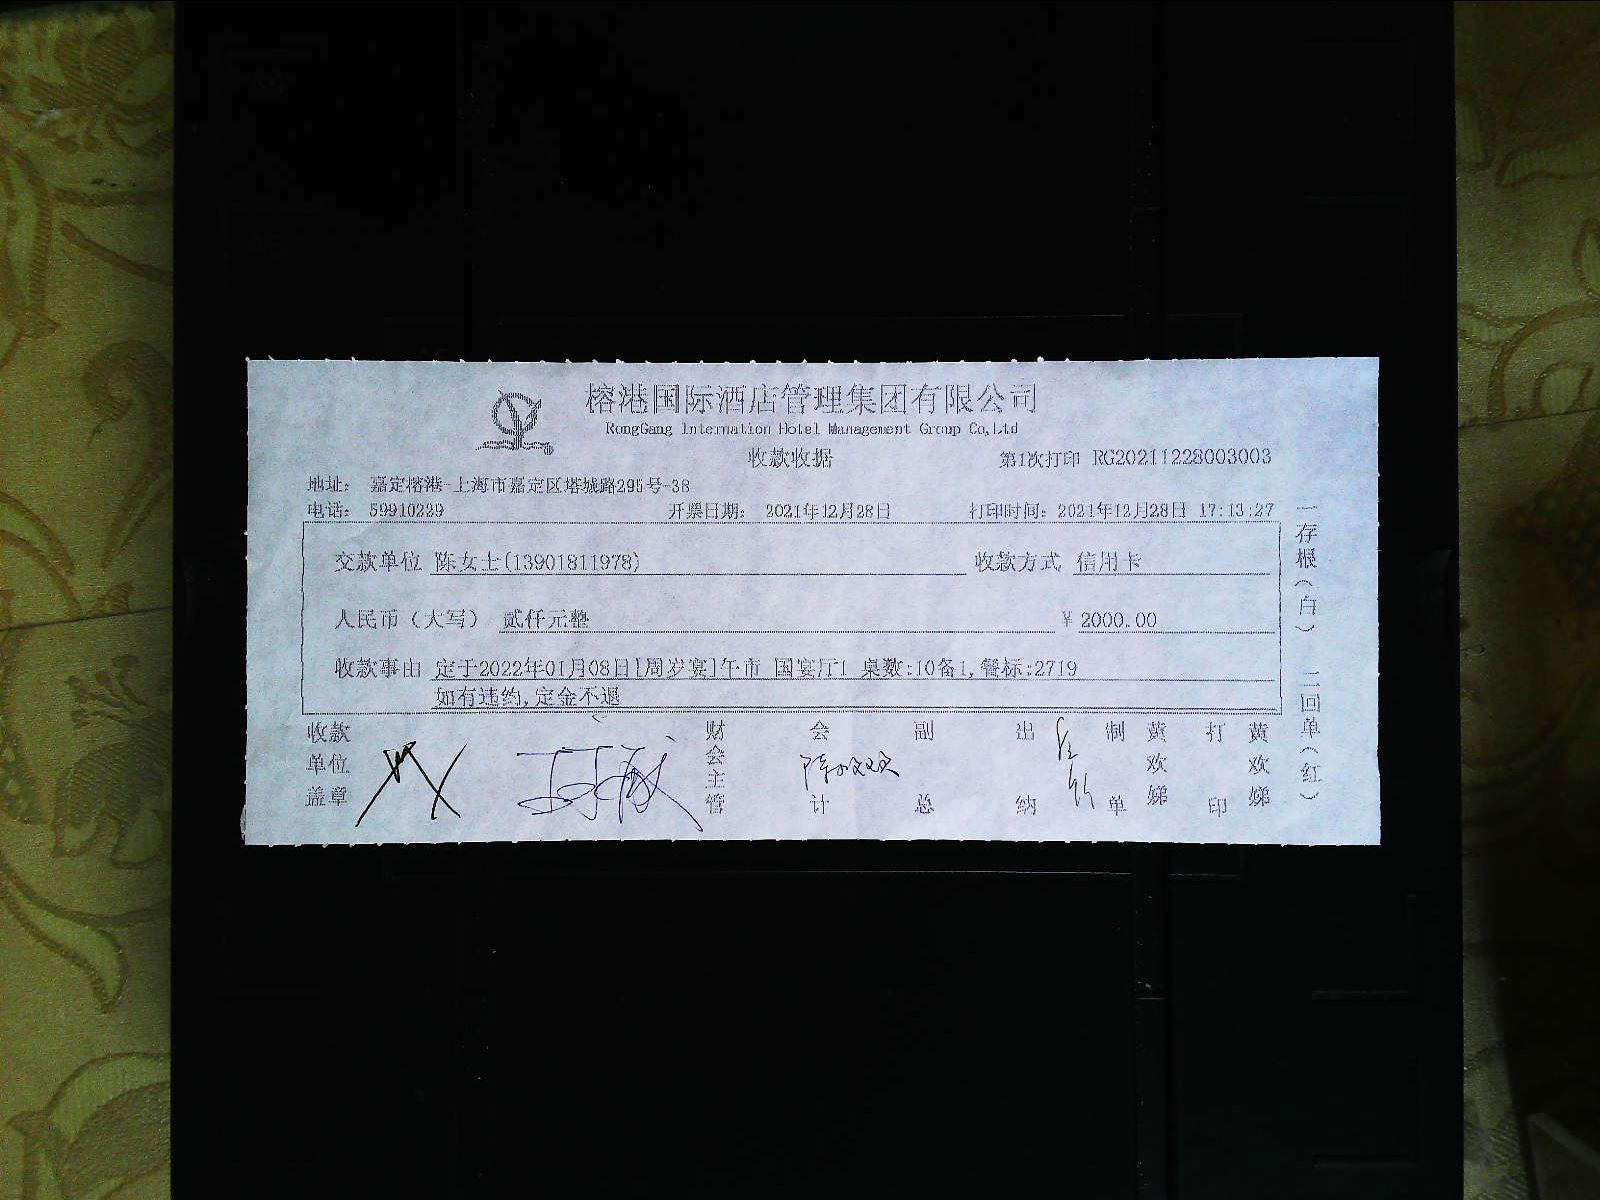 榕港国际酒店管理集团有限公司
RongGang Internation Hotel Management Group Co,Ltd
收款收据
第1次打印 RG20211228003003
地址： 嘉定榕港-上海市嘉定区塔城路295号-38
电话： 59910229 开票日期： 2021年12月28日 打印时间：2021年12月28日 17:13:27
交款单位 陈女士(13901811978) 收款方式 信用卡
人民币（大写） 贰仟元整 ¥ 2000.00
收款事由 定于2022年01月08日[周岁宴]午市 国宴厅1 桌数:10备1,餐标:2719
如有违约,定金不退
收款单位盖章 财会主管 会计 副总 出纳 制单 黄欢娣 打印 黄欢娣
一存根（白） 二回单（红）